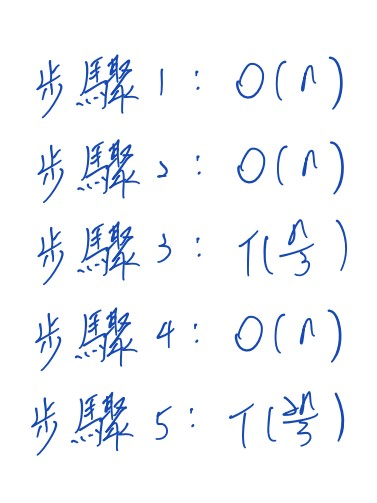 步驟 1 : O(n)
步驟 2 : O(n)
步驟 3 : T(n/3)
步驟 4 : O(n)
步驟 5 : T(2n/3)